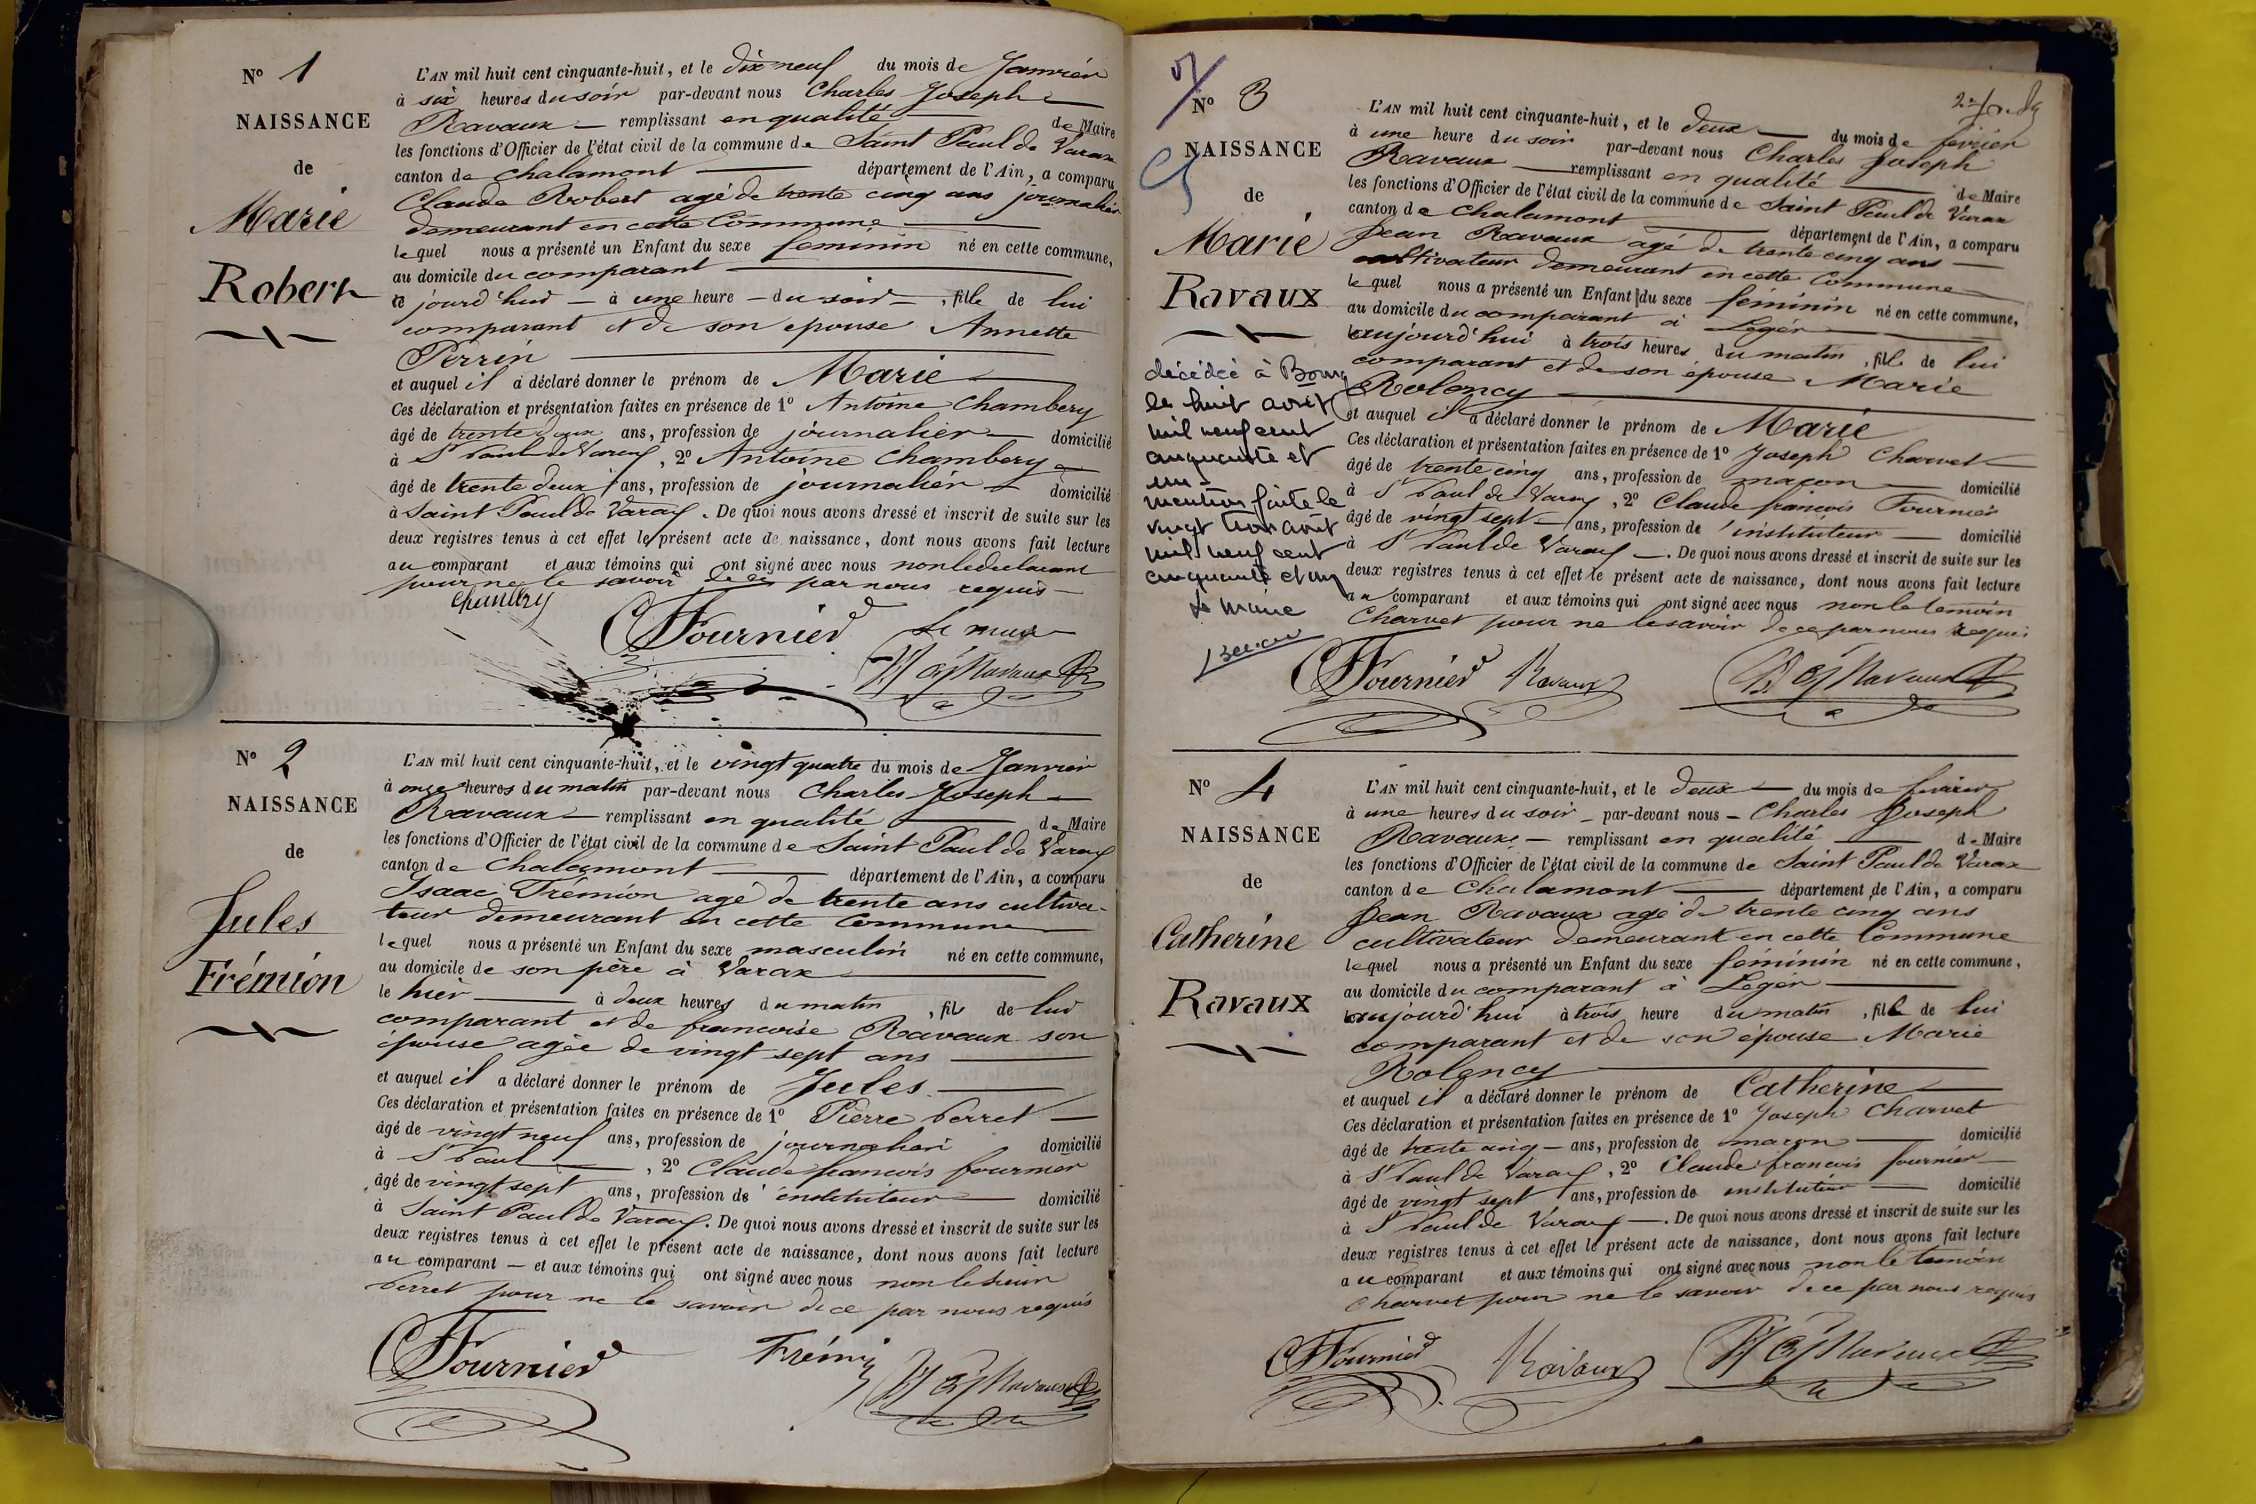 N° 1
NAISSANCE
de
Marie
Robert
L'AN mil huit cent cinquante-huit, et le dix neuf du mois de Janvier
à six heures du soir par-devant nous Charles Joseph
Ravaux remplissant en qualité de Maire
les fonctions d'Officier de l'état civil de la commune de Saint Paul de Varax
canton de Chalamont département de l'Ain, a comparu
Claude Robert agé de trente cinq ans journalier
demeurant en cette Commune
lequel nous a présenté un Enfant du sexe feminin né en cette commune,
au domicile du comparant
ce jourd'hui à une heure du soir, fille de lui
comparant et de son epouse Annette
Perrin
et auquel il a déclaré donner le prénom de Marie
Ces déclaration et présentation faites en présence de 1° Antoine Chambery
âgé de trente deux ans, profession de journalier domicilié
à St Paul de Varax, 2° Antoine Chambery
âgé de trente deux ans, profession de journalier domicilié
à Saint Paul de Varax. De quoi nous avons dressé et inscrit de suite sur les
deux registres tenus à cet effet le présent acte de naissance, dont nous avons fait lecture
au comparant et aux témoins qui ont signé avec nous non le declarant
pour ne le savoir de ce par nous requis
Chambery
CFournier
Le maire
Ravaux
N° 2
NAISSANCE
de
Jules
Frémion
L'AN mil huit cent cinquante-huit, et le vingt quatre du mois de Janvier
à onze heures du matin par-devant nous Charles Joseph
Ravaux remplissant en qualité de Maire
les fonctions d'Officier de l'état civil de la commune de Saint Paul de Varax
canton de Chalamont département de l'Ain, a comparu
Isaac Frémion agé de trente ans cultiva-
teur demeurant en cette Commune
lequel nous a présenté un Enfant du sexe masculin né en cette commune,
au domicile de son père à Varax
le hier à deux heures du matin, fils de lui
comparant et de francoise Ravaux son
épouse agée de vingt sept ans
et auquel il a déclaré donner le prénom de Jules
Ces déclaration et présentation faites en présence de 1° Pierre Perret
âgé de vingt neuf ans, profession de journalier domicilié
à St Paul, 2° Claude francois fournier
âgé de vingt sept ans, profession de instituteur domicilié
à Saint Paul de Varax. De quoi nous avons dressé et inscrit de suite sur les
deux registres tenus à cet effet le présent acte de naissance, dont nous avons fait lecture
au comparant et aux témoins qui ont signé avec nous non le sieur
Perret pour ne le savoir de ce par nous requis
CFournier
Frémion
Ravaux
N° 3
NAISSANCE
de
Marie
Ravaux
décédée à Bourg
le huit août
mil neuf cent
cinquante et
un
mention faite le
vingt trois août
mil neuf cent
cinquante et un
Le Maire
L'AN mil huit cent cinquante-huit, et le deux du mois de février
à une heure du soir par-devant nous Charles Joseph
Ravaux remplissant en qualité de Maire
les fonctions d'Officier de l'état civil de la commune de Saint Paul de Varax
canton de Chalamont département de l'Ain, a comparu
Jean Ravaux agé de trente cinq ans
cultivateur demeurant en cette Commune
lequel nous a présenté un Enfant du sexe féminin né en cette commune,
au domicile du comparant à Legér
aujourd'hui à trois heures du matin, fille de lui
comparant et de son épouse Marie
Rolency
et auquel il a déclaré donner le prénom de Marie
Ces déclaration et présentation faites en présence de 1° Joseph Charvet
âgé de trente cinq ans, profession de maçon domicilié
à St Paul de Varax, 2° Claude francois Fournier
âgé de vingt sept ans, profession de instituteur domicilié
à St Paul de Varax. De quoi nous avons dressé et inscrit de suite sur les
deux registres tenus à cet effet le présent acte de naissance, dont nous avons fait lecture
au comparant et aux témoins qui ont signé avec nous non le temoin
Charvet pour ne le savoir de ce par nous requis
CFournier Ravaux Ravaux
N° 4
NAISSANCE
de
Catherine
Ravaux
L'AN mil huit cent cinquante-huit, et le deux du mois de février
à une heures du soir par-devant nous Charles Joseph
Ravaux remplissant en qualité de Maire
les fonctions d'Officier de l'état civil de la commune de Saint Paul de Varax
canton de Chalamont département de l'Ain, a comparu
Jean Ravaux agé de trente cinq ans
cultivateur demeurant en cette Commune
lequel nous a présenté un Enfant du sexe féminin né en cette commune,
au domicile du comparant à Legér
aujourd'hui à trois heure du matin, fille de lui
comparant et de son épouse Marie
Rolency
et auquel il a déclaré donner le prénom de Catherine
Ces déclaration et présentation faites en présence de 1° Joseph Charvet
âgé de trente cinq ans, profession de maçon domicilié
à St Paul de Varax, 2° Claude francois fournier
âgé de vingt sept ans, profession de instituteur domicilié
à St Paul de Varax. De quoi nous avons dressé et inscrit de suite sur les
deux registres tenus à cet effet le présent acte de naissance, dont nous avons fait lecture
au comparant et aux témoins qui ont signé avec nous non le temoin
Charvet pour ne le savoir de ce par nous requis
CFournier Ravaux Ravaux